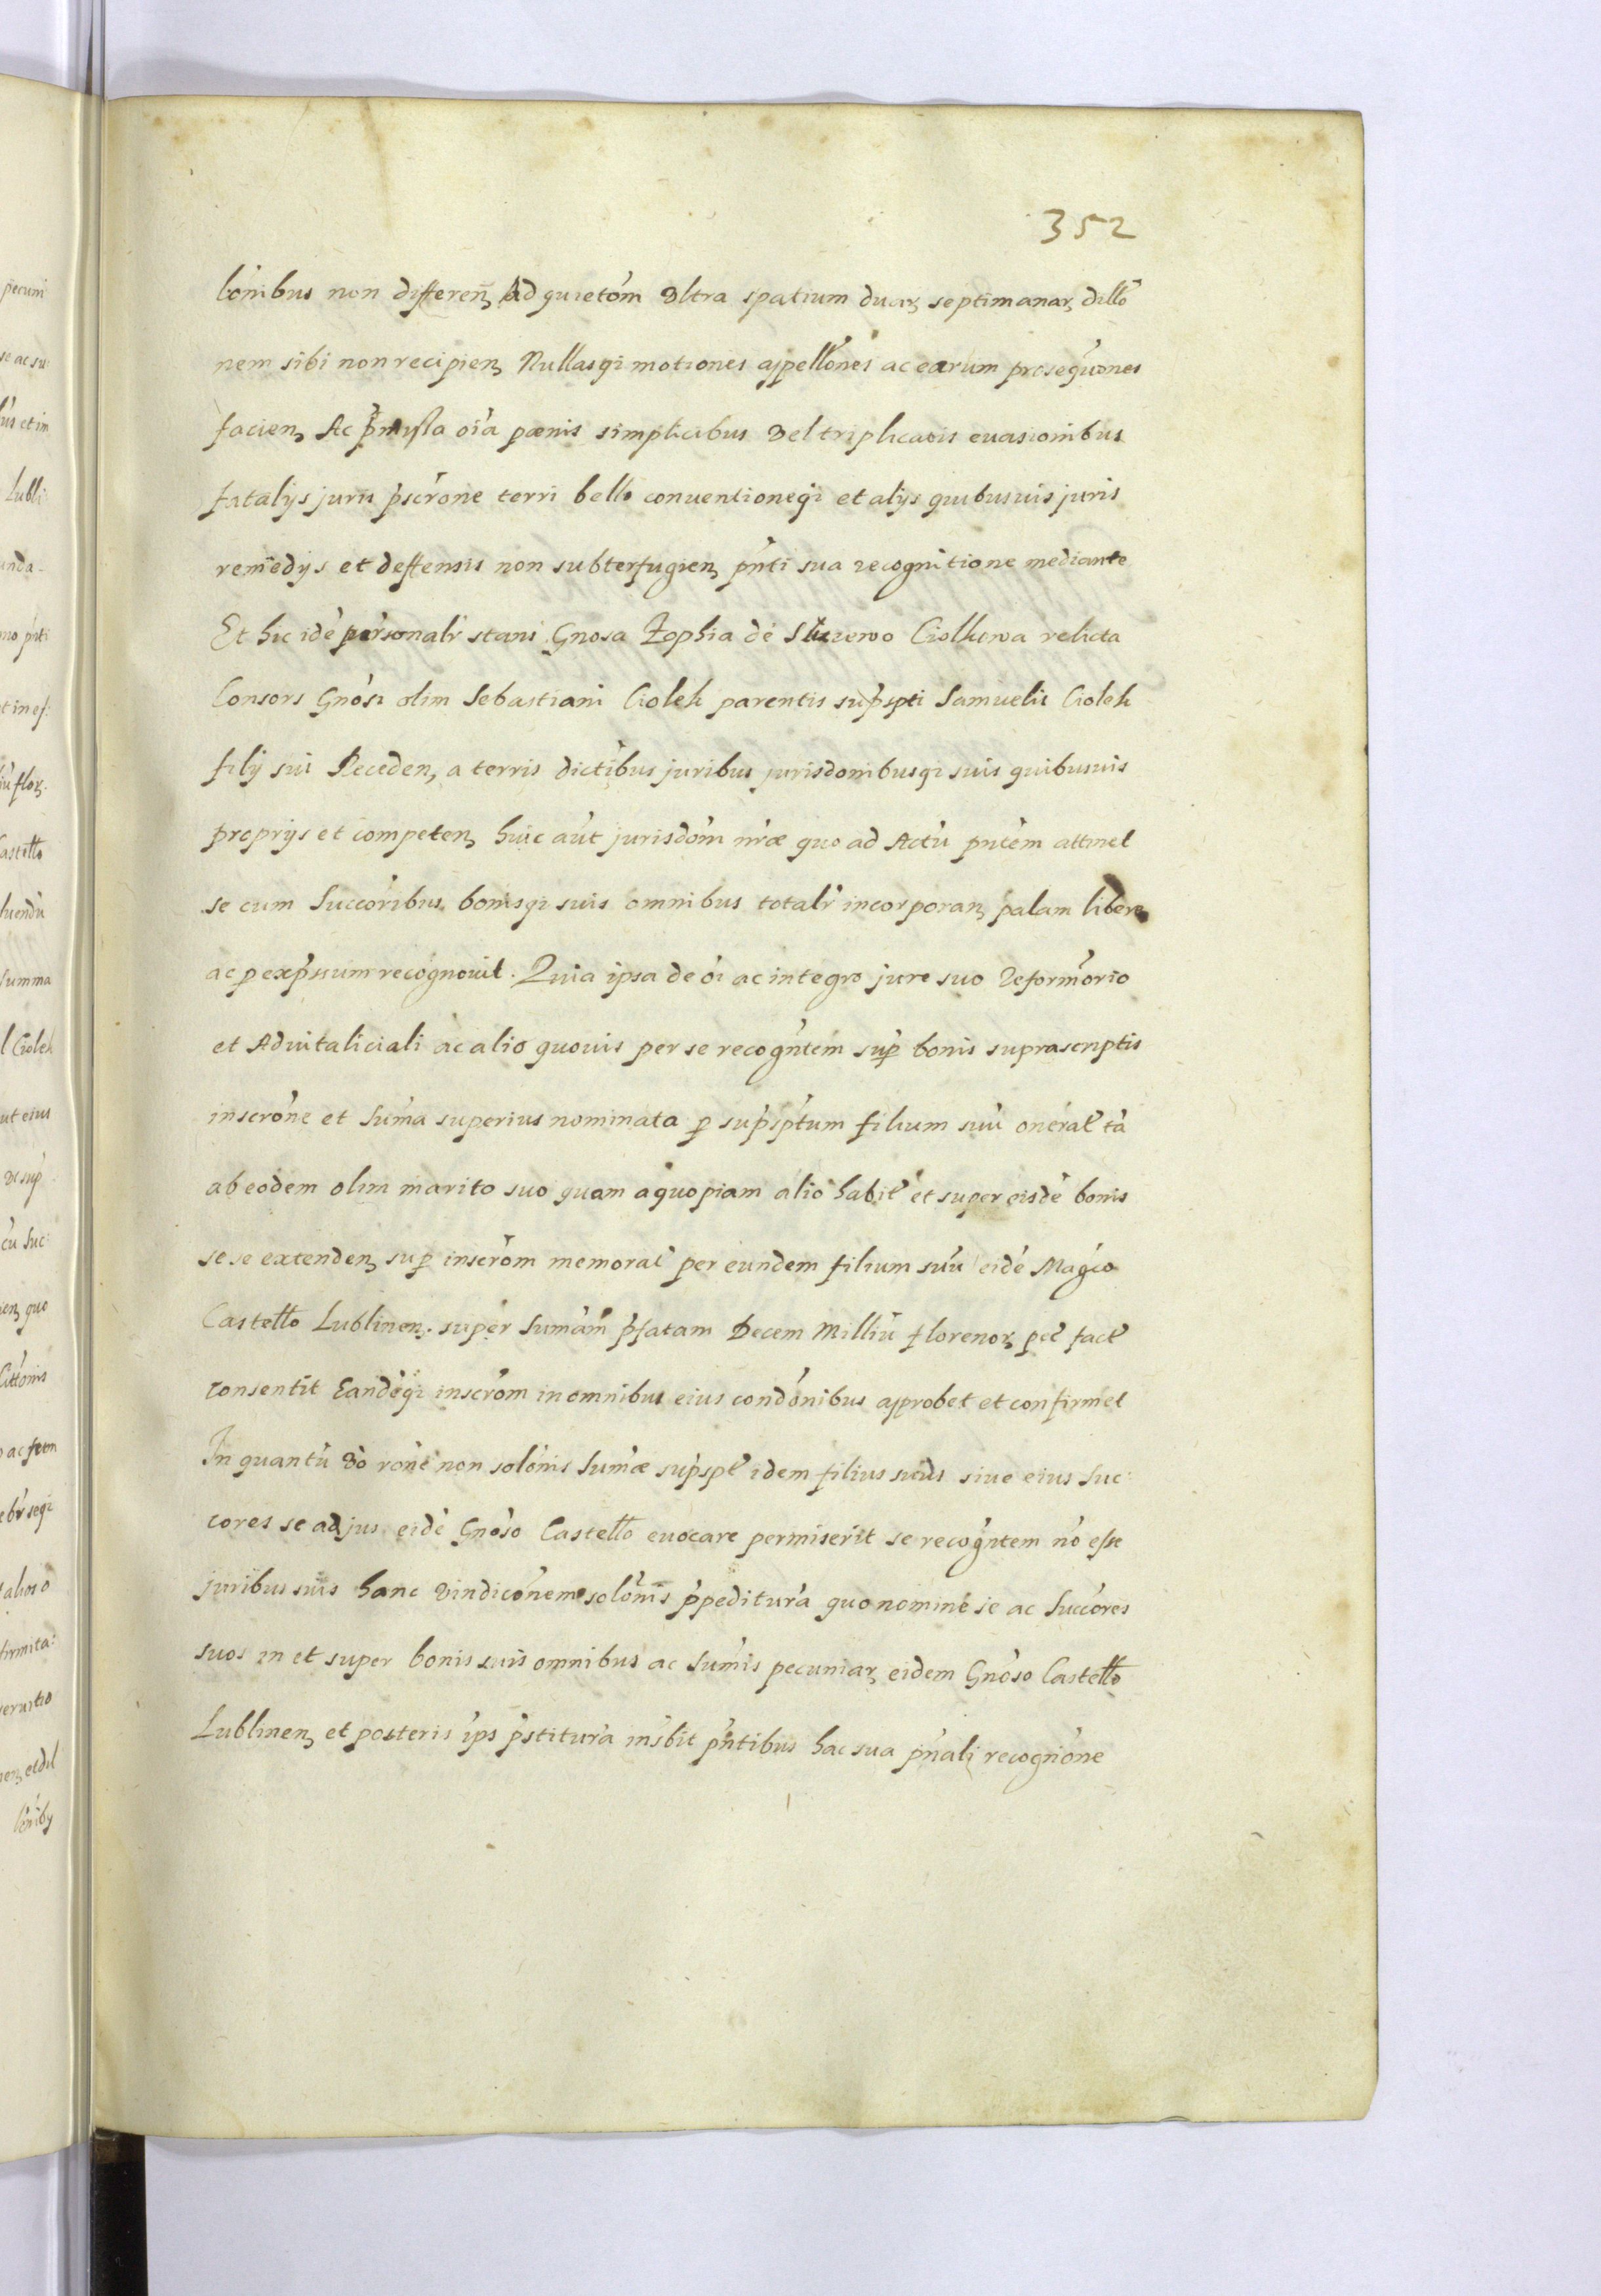 352
lōnibus non differeñ Ad quietōm Vltra spatium duarꝫ septimanarꝫ dillō
nem sibi non recipienꝫ Nullasqꝫ motiones appellōnes ac earum prosequōnes
facienꝫ Ac p̄missa oīa pænis simplicibus Vel triplicatis evasionibus
fatalijs juriū p̄scrōne terri bello conuentioneqꝫ et alijs quibusuis juris
remedijs et deffensis non subterfugienꝫ pn̄ti sua recognitione mediante
Et hic idē personalr̄ stans Gnosa Zophia de Ciolkowa relicta
Consors Gnōsi olim Sebastiani Ciolek parentis sup̄spti Samuelis Ciolek
filij sui Recedenꝫ a terris dictībus juribus jurisdōnibusqꝫ suis quibusuis
proprijs et competenꝫ huic aūt jurisdōni nr̄æ quo ad Actū pn̄tem attinet
se cum Succōribus bonisqꝫ suis omnibus totalr̄ incorporanꝫ palam libere
ac p exp̄ssum recognouit. Quia ipsa de oī ac integro jure suo Reformōrio
et Aduitaliciali ac alio quouis per se recogn̄tem sup̄ bonis suprascriptis
inscrōne et Suma superius nominata p sup̄sptum filium suū onerat̄ tā
ab eodem olim marito suo quam a quopiam alio habit̄ et super eisdē bonis
se se extendenꝫ sup̄ inscrōm memorat̄ per eundem filium suū eidē Magco
Castello Lublinenꝫ. super Sumām p̄fatam Decem Milliū florenorꝫ pēr fact̄
consentit Eandēqꝫ inscrōm in omnibus eius condōnibus approbet et confirmet
In quantū Vō rōne non solōnis Sumæ sup̄spt̄ idem filius suus siue eius Suc:
cores se ad jus eidē Gnōso Castello euocare permiserit se recogn̄tem nō esse
juribus suis hanc Vindicōnem solōnis p̄peditura quo nomine se ac Succōres
suos in et super bonis suis omnibus ac Sumis pecuniarꝫ eidem Gnōso Castello
Lublinenꝫ et posteris ips p̄stitura insbit pn̄tibus hac sua pn̄ali recognōne